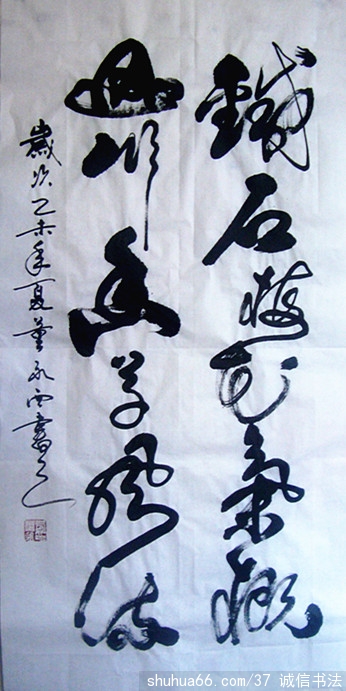 鐵石梅花氣概
山川香草風流
歲次乙未年夏董永西書之
shuhua66.com/37 诚信书法